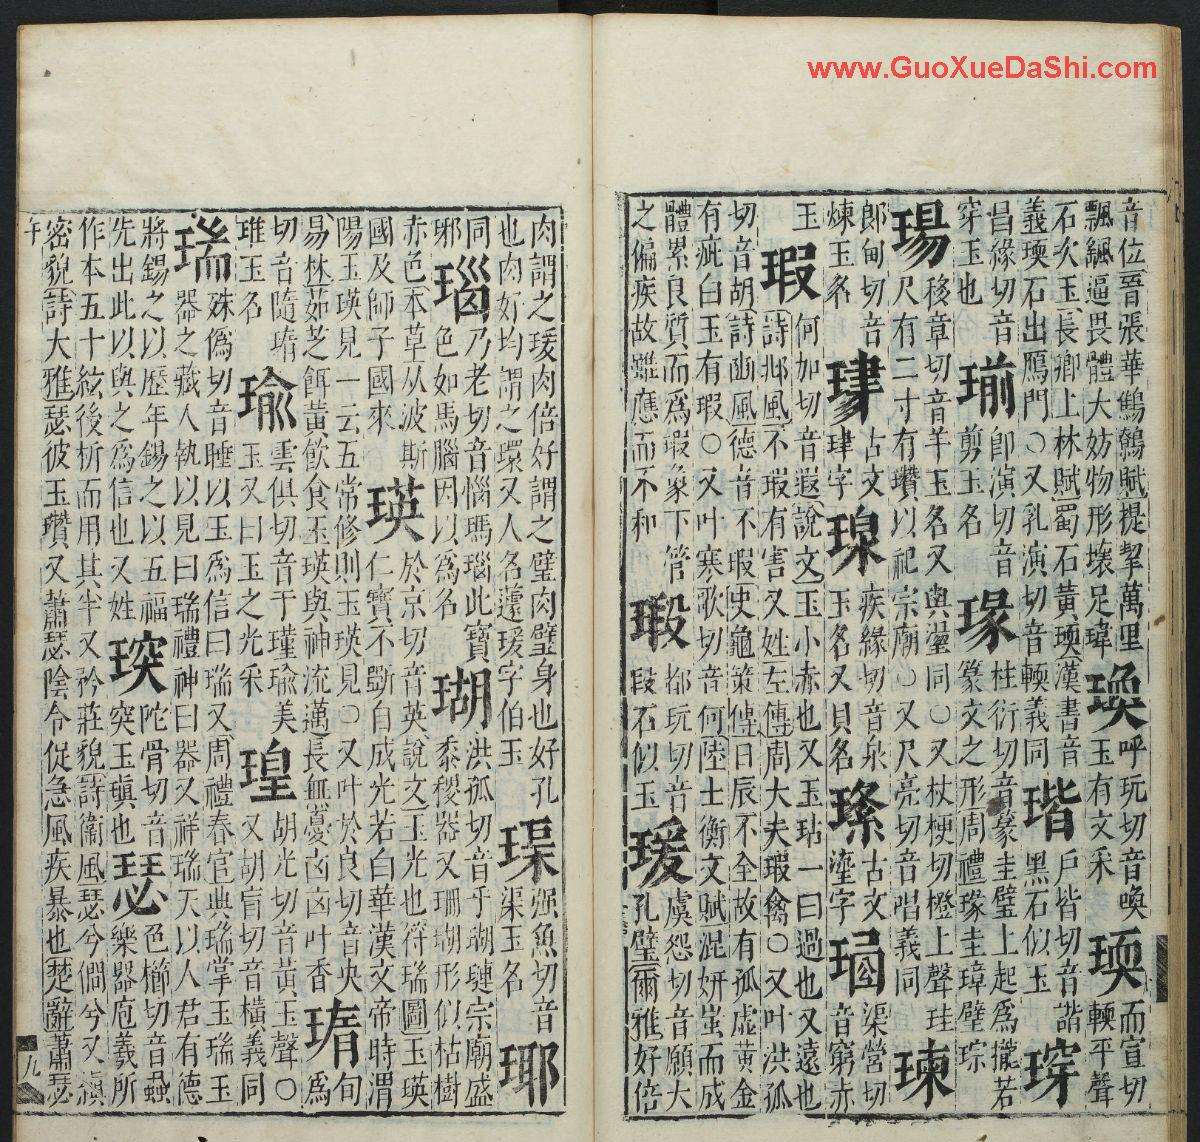 www.GuoXueDaShi.com
音位晉張華鷦鷯賦提挈萬里
飄颻逼畏體大妨物形壞足瑋瑍呼玩切音喚
玉有文采瑌而宣切輭平聲
石次玉長卿上林賦蜀石黃瑌漢書音
義瑌石出鴈門〇又乳演切音輭義同瑎戶皆切音諧
黑石似玉瑏
昌緣切音
穿玉也瑐卽演切音
剪玉名瑑柱衍切音篆圭璧上起爲攏若
篆文之形周禮瑑圭璋璧琮
瑒移章切音羊玉名又與璗同〇又杖梗切橙上聲珪
尺有二寸有瓚以祀宗廟〇又尺亮切音唱義同瑓
郎甸切音
煉玉名古文
珒字瑔疾緣切音泉
玉名又貝名古文
瑬字渠營切
音窮赤
玉瑕何加切音遐說文玉小赤也又玉玷一曰過也又遠也
詩邶風不瑕有害又姓左傳周大夫瑕禽〇又叶洪孤
切音胡詩豳風德音不瑕史龜策傳日辰不全故有孤虛黃金
有疵白玉有瑕〇又叶寒歌切音何陸士衡文賦混妍蚩而成
體累良質而爲瑕象下管
之偏疾故雖應而不和瑖都玩切音
段石似玉瑗虞怨切音願大
孔璧爾雅好倍
肉謂之瑗肉倍好謂之璧肉璧身也好孔
也肉好均謂之環又人名蘧瑗字伯玉璖强魚切音
渠玉名瑘
同
邪瑙乃老切音惱瑪瑙此寶
色如馬腦因以爲名瑚洪孤切音乎瑚璉宗廟盛
黍稷器又珊瑚形似枯樹
赤色本草从波斯
國及師子國來瑛於京切音英說文玉光也符瑞圖玉瑛
仁寶不斲自成光若白華漢文帝時渭
陽玉瑛見一云五常修則玉瑛見〇又叶於良切音央
易林茹芝餌黃飲食玉瑛與神流邁長無憂凶凶叶香旬
爲
切音隨琦
琟玉名瑜雲俱切音于瑾瑜美
玉又曰玉之光采瑝胡光切音黃玉聲〇
又胡盲切音橫義同
瑞殊僞切音睡以玉爲信曰瑞又周禮春官典瑞掌玉瑞玉
器之藏人執以見曰瑞禮神曰器又祥瑞天以人君有德
將錫之以歷年錫之以五福
先出此以與之爲信也又姓陀骨切音
突玉瑱也瑟色櫛切音蝨
樂器庖羲所
作本五十絃後析而用其半又矜莊貌詩衞風瑟兮僩兮又縝
密貌詩大雅瑟彼玉瓚又蕭瑟陰令促急風疾暴也楚辭蕭瑟
九